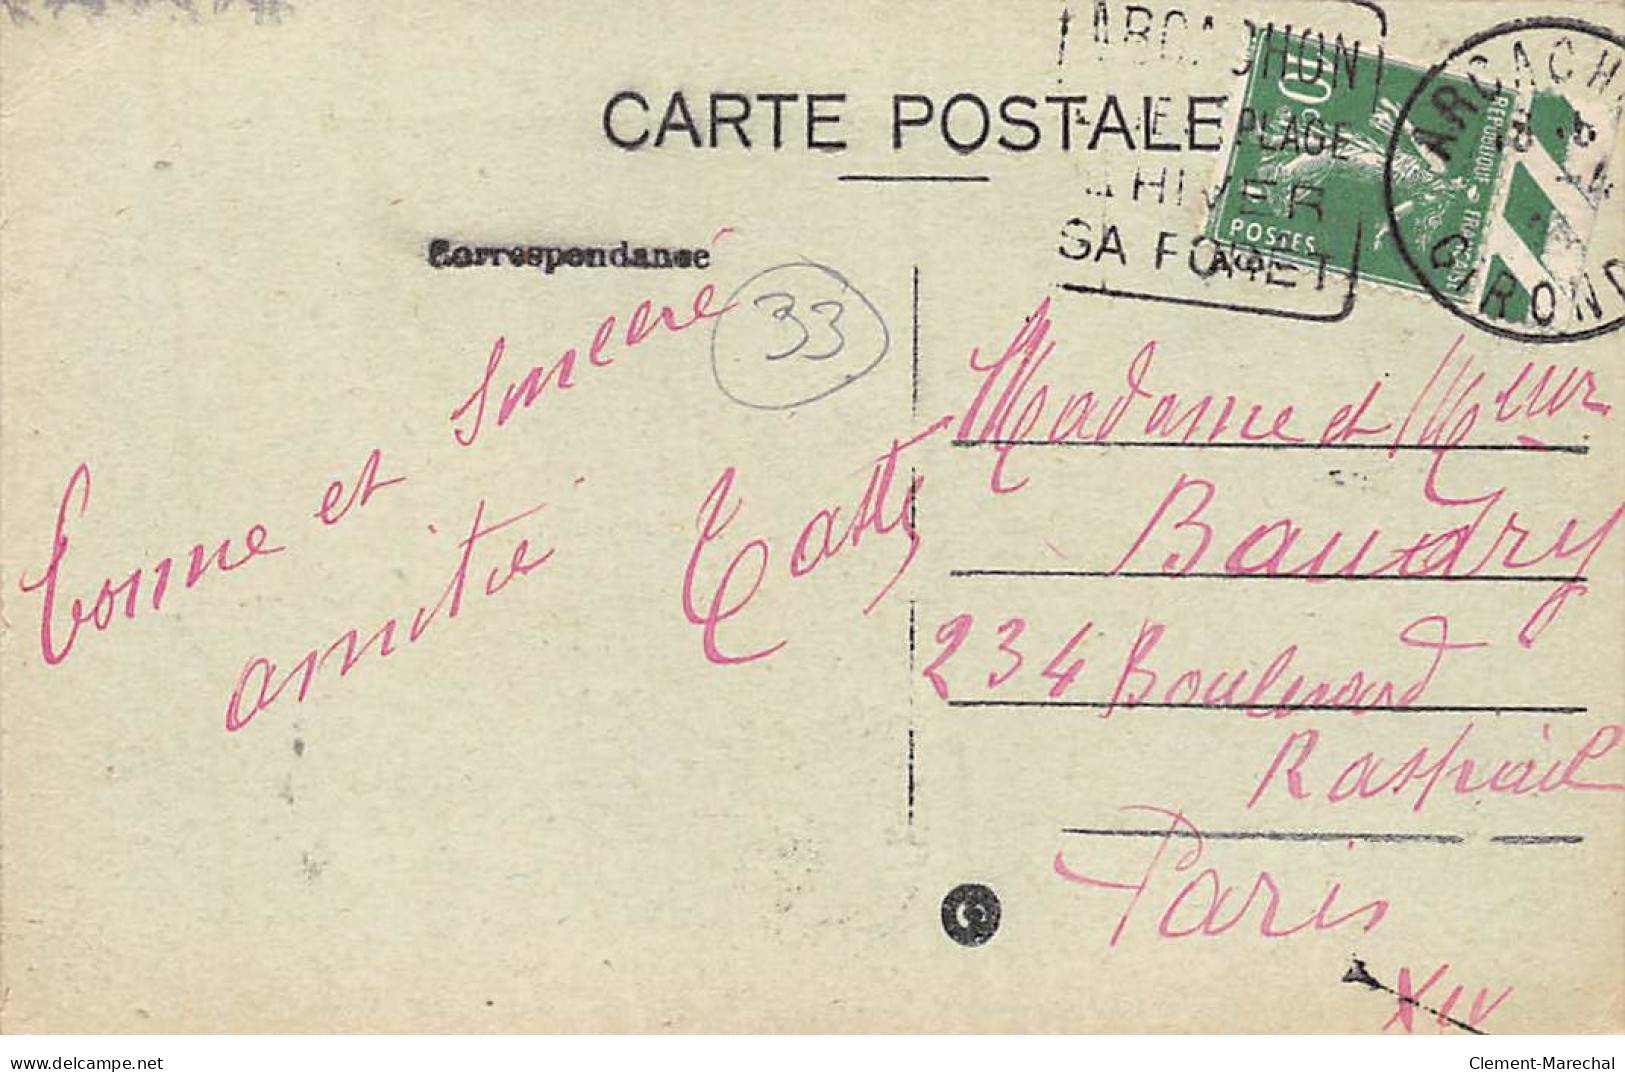 CARTE POSTALE
ARCACHON
PLAGE
HIVER
SA FORÊT
ARCACH
18
24
GIROND
REPUBLIQUE FRANÇAISE
POSTES
Correspondance
33
Bonne et sincère
amitié
Madame et Mseur
Baudry
234 Boulevard
Raspail
Paris
XIV
delcampe.net
Clement-Marechal